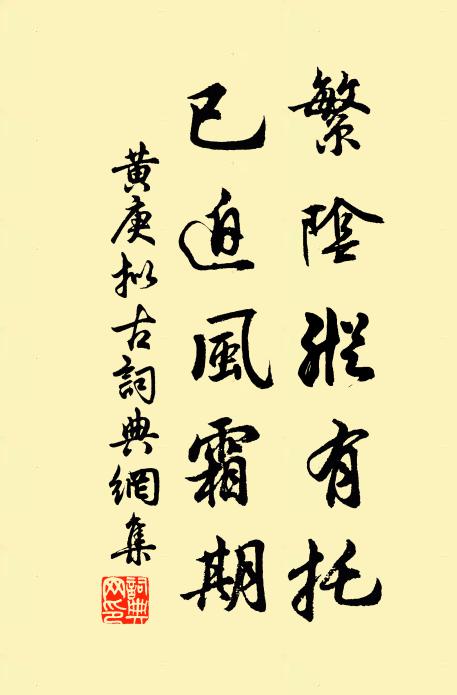 繁陰縱有托
已迫風霜期
黄庚拟古詞典網集
詞典網印